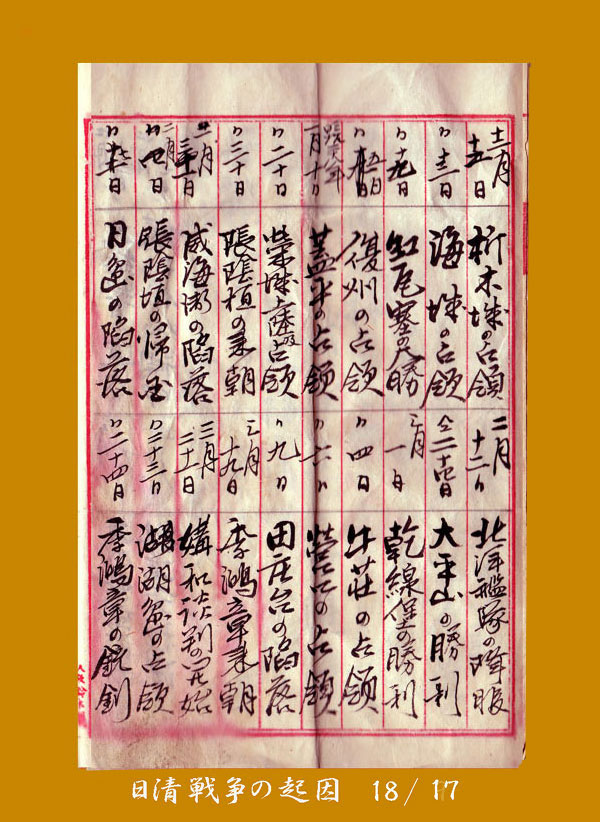 十二月
十五日
析木城の占領
〃十三日
海城の占領
〃十九日
缸瓦寨の大勝
復州の占領
一月十日
蓋平の占領
〃二十日
栄城上陸及占領
〃三十日
張陰桓の来朝
威海衛の陥落
張陰垣の帰
日島の陥落
二月
十二日
北洋艦隊の降服
仝二十四日
大平山の勝利
三月
一日
乾線堡の勝利
〃四日
牛荘の占領
〃六〃
営口の占領
〃九〃
田庄台の陥落
三月
十九日
李鴻章来朝
三月
二十日
媾和談判の開始
〃二十三〃
湖島の占領
〃二十四日
李鴻章の銃創
日清戦争の起因 18/17